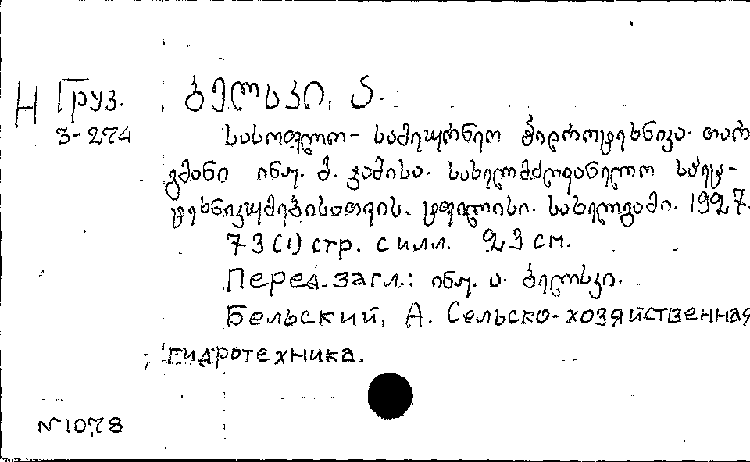 Н Груз. ბელსკი, ა.
3-274 სასოფლო-სამეურნეო ჰიდროტეხნიკა. თარ
გმანი ინჟ. მ. სახელმძღვანელო
ტფილისი. სახელგამი. 1927.
73(1) стр. с илл. 23 см.
Перед загл.: ინჟ. ა. ბელსკი.
Бельский, А. Сельско-хозяйственная
гидротехника.
№ 1078